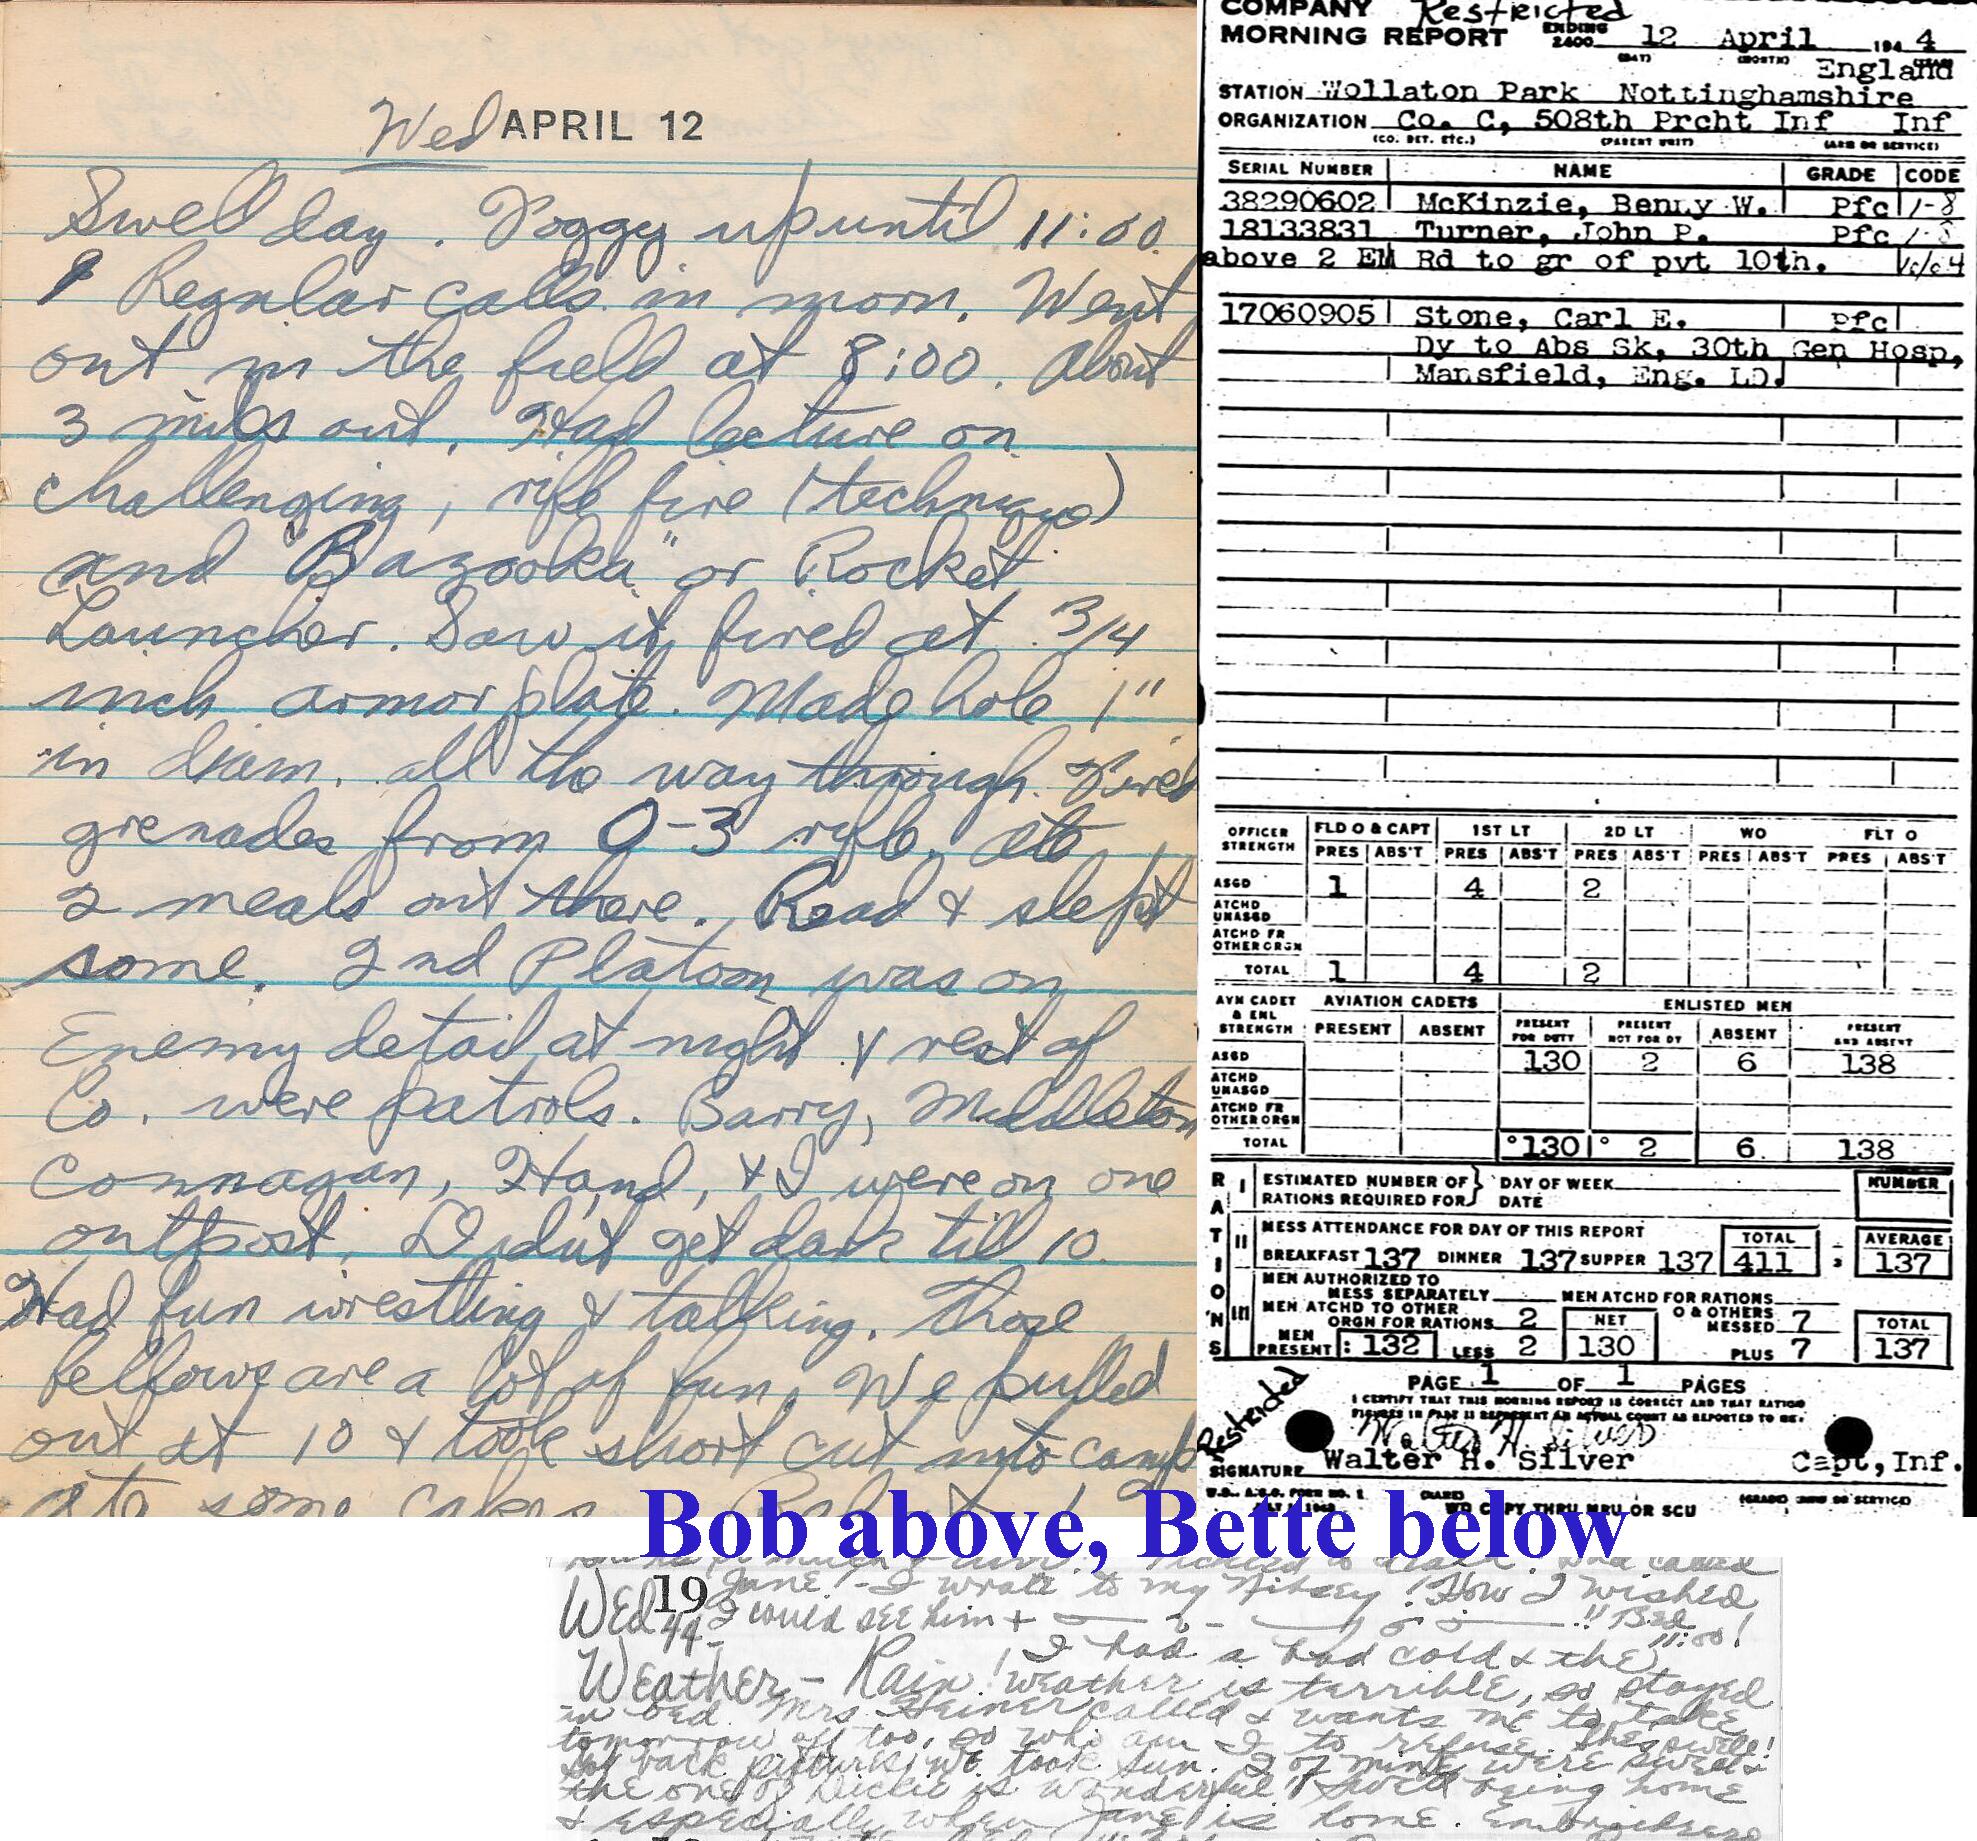 Wed APRIL 12
Swell day. Foggy up until 11:00.
Regular calls in morn. Went
out in the field at 8:00. About
3 miles out. Had lecture on
challenging, rifle fire (technique)
and "Bazooka" or Rocket
Launcher. Saw it fired at 3/4
inch armor plate. Made hole 1"
in diam. all the way through. Fired
grenades from 0-3 rifle. Ate
2 meals out there. Read & slept
some. 2nd Platoon was on
Enemy detail at night & rest of
Co. were patrols. Barry, Middleton
Connagan, Hand, & I were on one
outpost. Didn't get dark till 10.
Had fun wrestling & talking. Those
fellows are a lot of fun. We pulled
out at 10 & took short cut into camp
ate some cakes
COMPANY Restricted
MORNING REPORT ENDING 2400 12 April 1944
(DAY) (MONTH)
England
STATION Wollaton Park Nottinghamshire
ORGANIZATION Co. C, 508th Prcht Inf Inf
(CO. DET. ETC.) (PARENT UNIT) (ARM OR SERVICE)
SERIAL NUMBER NAME GRADE CODE
38290602 McKinzie, Benly W. Pfc 1-8
18133831 Turner, John P. Pfc 1-8
above 2 EM Rd to gr of pvt 10th.
17060905 Stone, Carl E. Pfc
Dy to Abs Sk, 30th Gen Hosp,
Mansfield, Eng. LD.
OFFICER STRENGTH FLD O & CAPT 1ST LT 2D LT WO FLT O
PRES ABS'T PRES ABS'T PRES ABS'T PRES ABS'T PRES ABS'T
ASGD 1 4 2
ATCHD UNASGD
ATCHD FR OTHER ORGN
TOTAL 1 4 2
AVN CADET & ENL STRENGTH AVIATION CADETS ENLISTED MEN
PRESENT ABSENT PRESENT FOR DUTY PRESENT NOT FOR DY ABSENT PRESENT AND ABSENT
ASGD 130 2 6 138
ATCHD UNASGD
ATCHD FR OTHER ORGN
TOTAL 130 2 6 138
RATIONS
I ESTIMATED NUMBER OF RATIONS REQUIRED FOR DAY OF WEEK DATE NUMBER
II MESS ATTENDANCE FOR DAY OF THIS REPORT TOTAL AVERAGE
BREAKFAST 137 DINNER 137 SUPPER 137 411 : 3 137
MEN AUTHORIZED TO
MESS SEPARATELY MEN ATCHD FOR RATIONS
III MEN ATCHD TO OTHER ORGN FOR RATIONS 2 NET O & OTHERS MESSED 7 TOTAL
MEN PRESENT: 132 LESS 2 130 PLUS 7 137
PAGE 1 OF 1 PAGES
I CERTIFY THAT THIS MORNING REPORT IS CORRECT AND THAT RATION
FIGURES IN PART III REPRESENT AN ACTUAL COUNT AS REPORTED TO ME.
Restricted
Walter H. Silver
SIGNATURE Walter H. Silver Capt, Inf.
WD COPY THRU MRU OR SCU
Bob above, Bette below
Wed 1944 Jane! - I wrote to my! How I wished
I could see him + !! Bed 11:00!
Weather - Rain! I had a bad cold & the
weather is terrible, so stayed
in bed. Mrs called & wants me to take
tomorrow off too, so who am I to refuse. She's swell!
Got back pictures we took Sun. 2 of mine were swell &
the one of Dickie is wonderful! Swell being home
& especially when Jane is home.